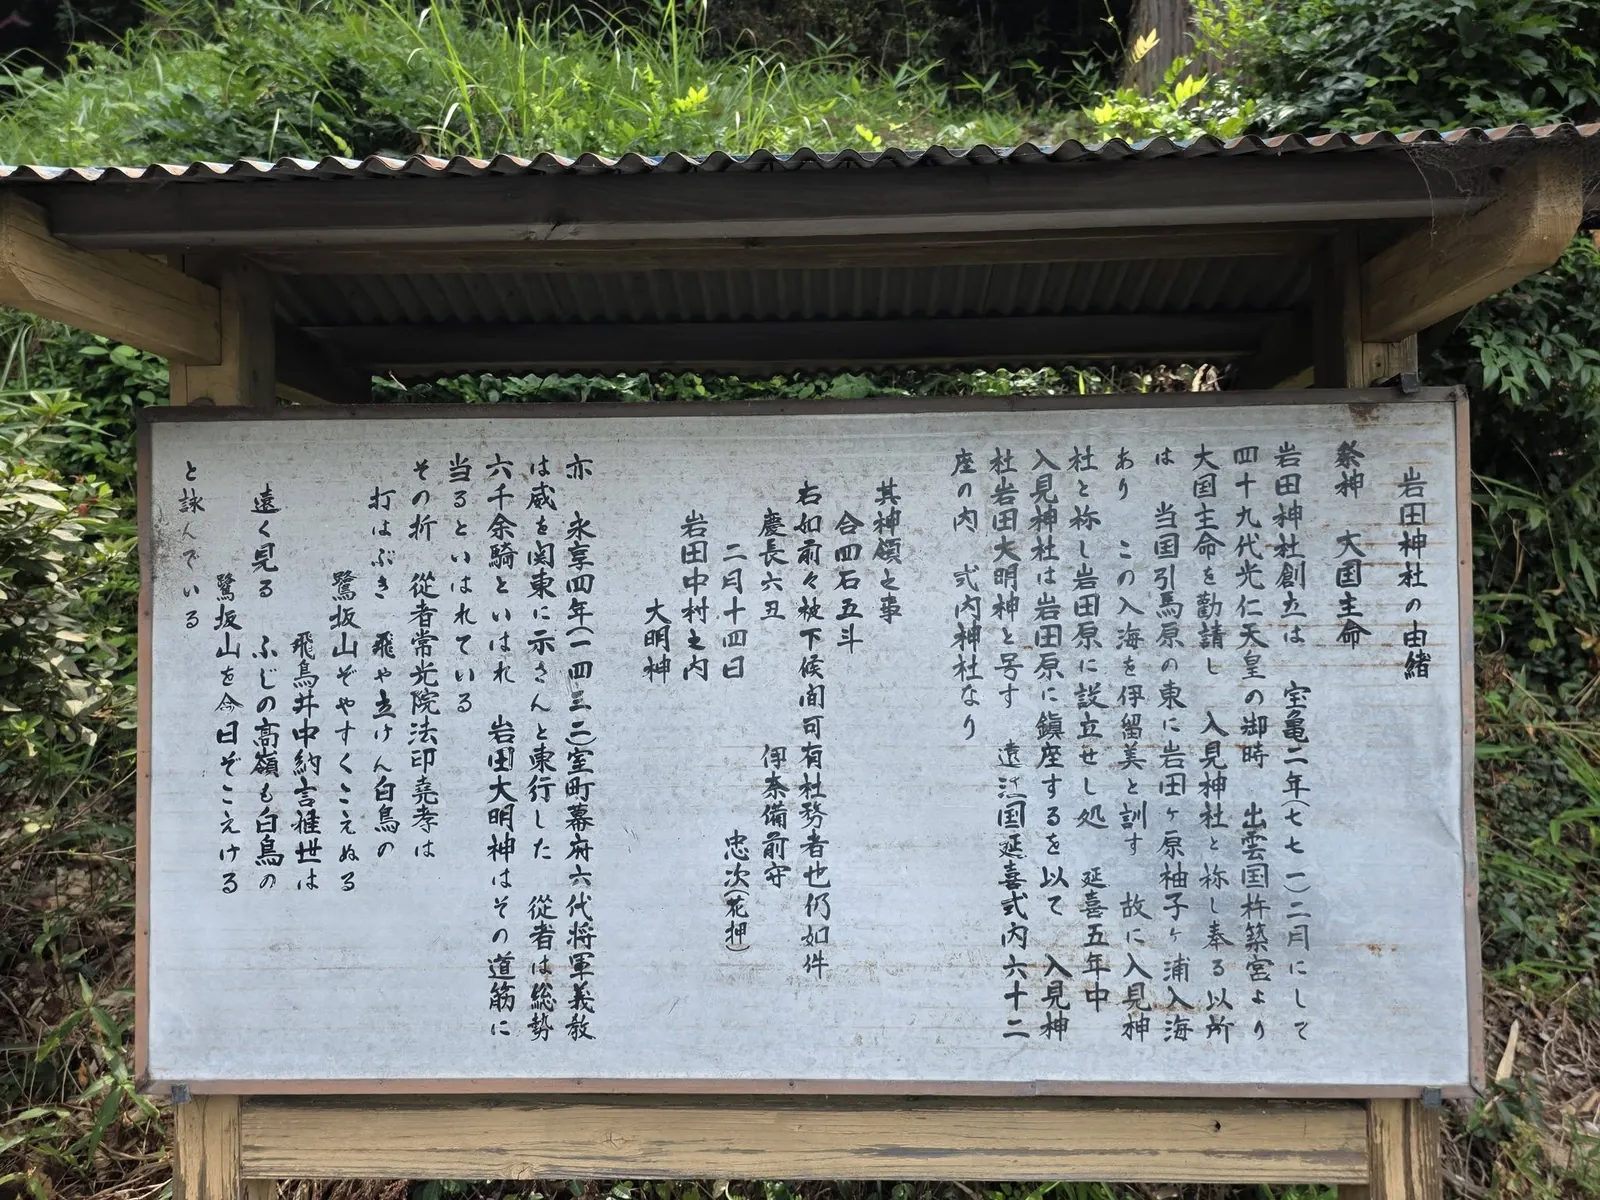 岩田神社の由緒
祭神　大国主命
岩田神社創立は　室亀二年(七七一)二月にして
四十九代光仁天皇の御時　出雲国杵築宮より
大国主命を勧請し　入見神社と称し奉る以所
は　当国引馬原の東に岩田ヶ原柚子ヶ浦入海
あり　この入海を伊留美と訓す　故に入見神
社と称し岩田原に設立せし処　延喜五年中
入見神社は岩田原に鎭座するを以て　入見神
社岩田大明神と号す　遠江国延喜式内六十二
座の内　式内神社なり
其神領之事
合四石五斗
右如前々被下候間可有社務者也仍如件
慶長六丑　伊奈備前守
二月十四日　忠次(花押)
岩田中村之内
大明神
亦　永享四年(一四三二)室町幕府六代将軍義教
は威を関東に示さんと東行した　從者は総勢
六千余騎といはれ　岩田大明神はその道筋に
当るといはれている
その折　從者常光院法印堯孝は
打はぶき　飛や立けん白鳥の
鷺坂山ぞやすくこえぬる
飛鳥井中納言雅世は
遠く見る　ふじの高嶺も白鳥の
鷺坂山を今日ぞこえける
と詠んでいる